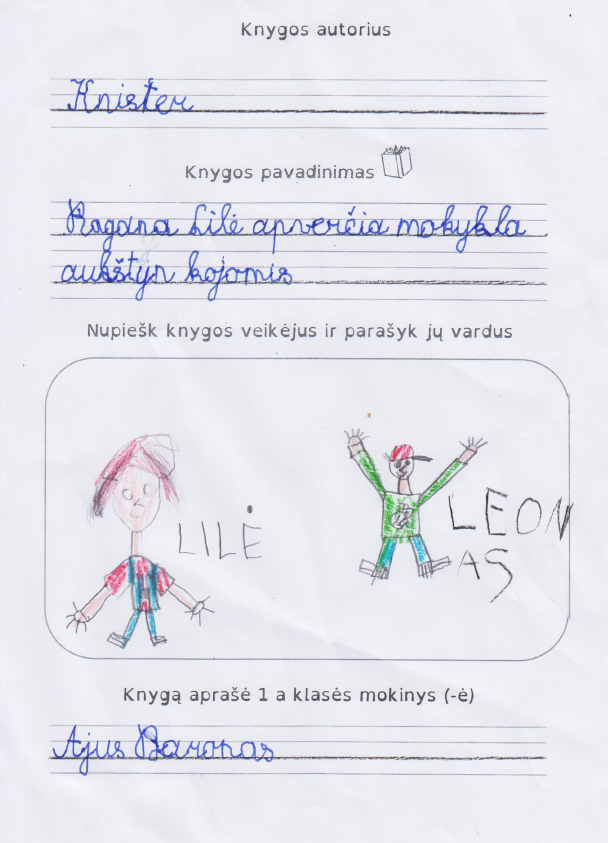 Knygos autorius
Knister
Knygos pavadinimas
Ragana Lilė apverčia mokykla
aukštyn kojomis
Nupiešk knygos veikėjus ir parašyk jų vardus
LILĖ
LEON
AS
Knygą aprašė 1 a klasės mokinys (-ė)
Ajus Baronas